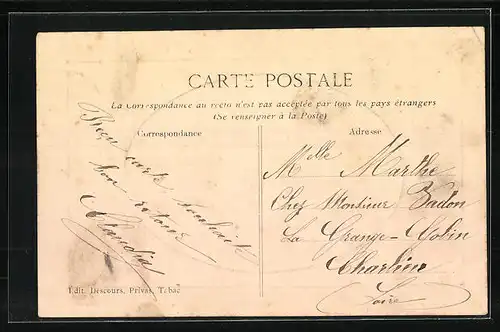 CARTE POSTALE
La Correspondance au recto n'est pas acceptée par tous les pays étrangers
(Se renseigner à la Poste)
Correspondance
Reçu carte souhaite
bon retour
Claudia
Adresse
Melle Marthe
Chez Monsieur Badon
La Grange-Gobin
Charlieu
Loire
Edit. Descours, Privas, Tabac